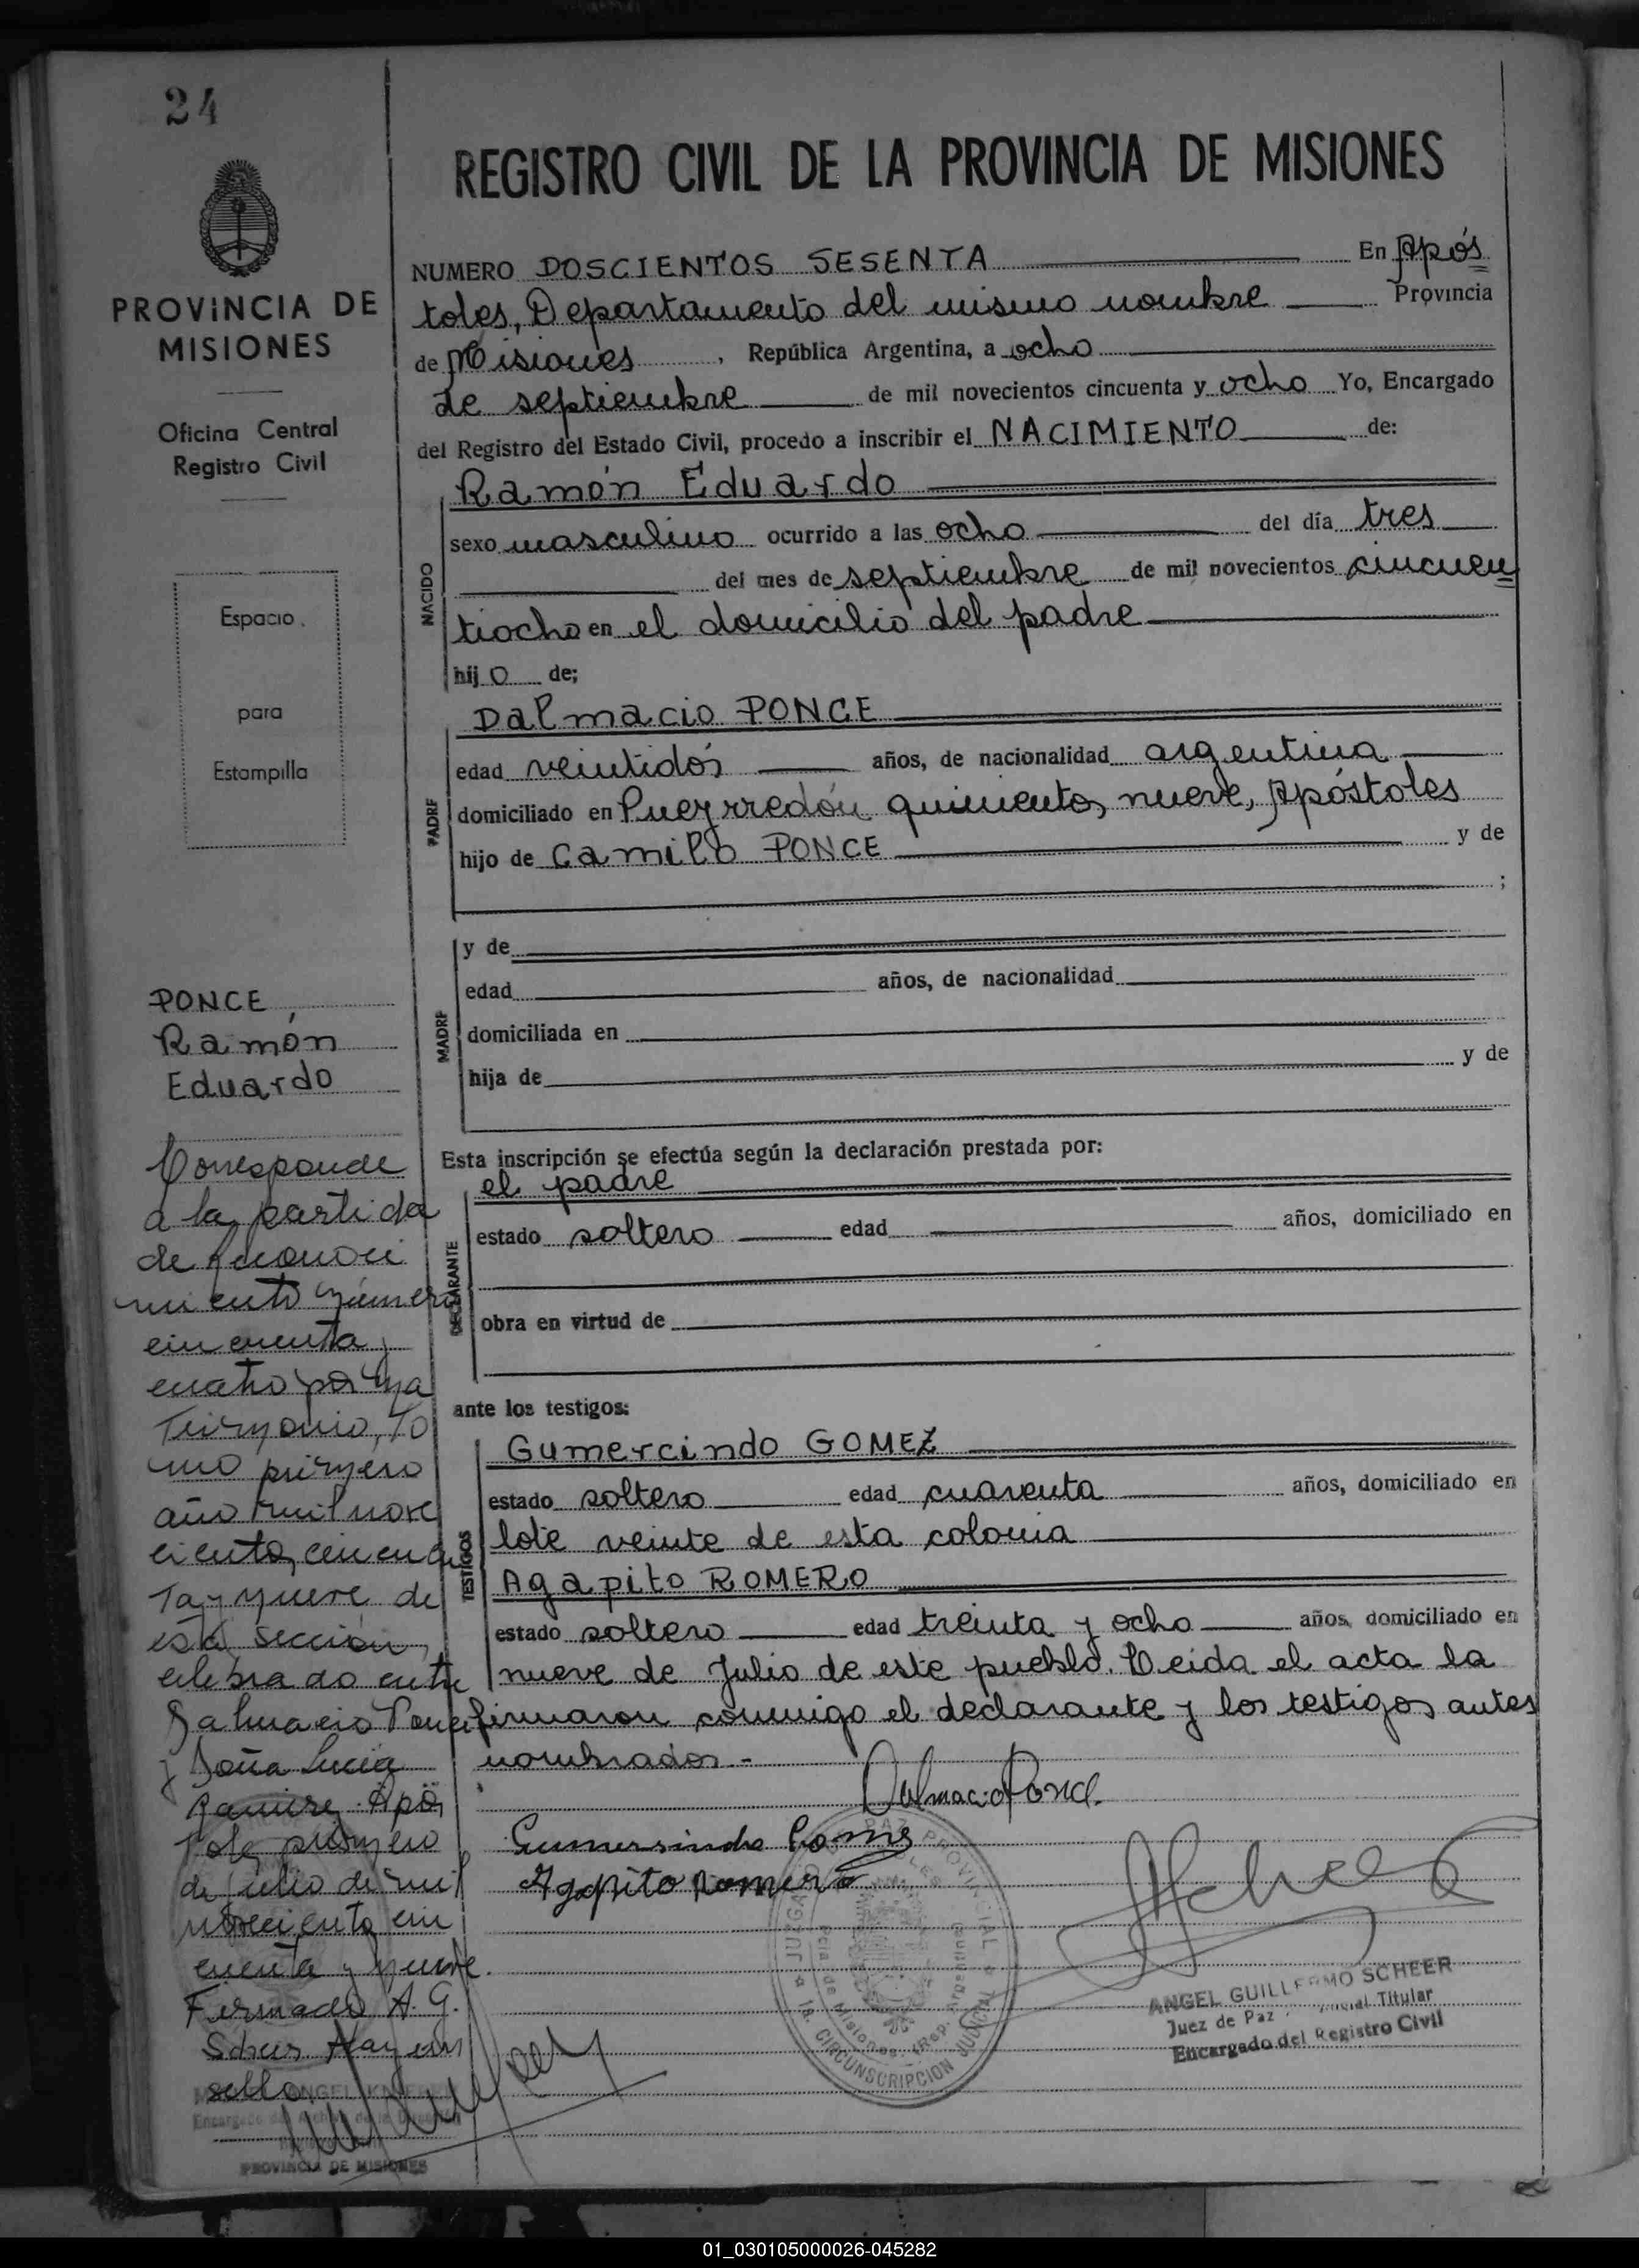 24
PROVINCIA DE
MISIONES
Oficina Central
Registro Civil
Espacio
para
Estampilla
REGISTRO CIVIL DE LA PROVINCIA DE MISIONES
NUMERO DOSCIENTOS SESENTA En Após
toles, Departamento del mismo nombre Provincia
de Misiones, República Argentina, a ocho
de septiembre de mil novecientos cincuenta y ocho Yo, Encargado
del Registro del Estado Civil, procedo a inscribir el NACIMIENTO de:
NACIDO
Ramón Eduardo
sexo masculino ocurrido a las ocho del día tres
del mes de septiembre de mil novecientos cincuen
tiocho en el domicilio del padre
hijo de;
PADRE
Dalmacio PONCE
edad veintidós años, de nacionalidad argentina
domiciliado en Pueyrredón quinientos nueve, Apóstoles
hijo de Camilo PONCE y de
;
MADRE
y de
edad años, de nacionalidad
domiciliada en
hija de y de
Esta inscripción se efectúa según la declaración prestada por:
DECLARANTE
el padre
estado soltero edad años, domiciliado en
obra en virtud de
ante los testigos:
TESTIGOS
Gumercindo GOMEZ
estado soltero edad cuarenta años, domiciliado en
lote veinte de esta colonia
Agapito ROMERO
estado soltero edad treinta y ocho años, domiciliado en
nueve de Julio de este pueblo. Leida el acta la
firmaron conmigo el declarante y los testigos antes
nombrados.-
Dalmacio Ponce
Gumersindo Gomez
Agapito Romero
ANGEL GUILLERMO SCHEER
Juez de Paz Titular
Encargado del Registro Civil
JUZGADO PAZ PROVINCIAL
1a. CIRCUNSCRIPCION JUDICIAL
Pcia. de Misiones (Rep. Argentina)
PONCE,
Ramón
Eduardo
Corresponde
a la partida
de reconoci
miento número
cincuenta y
cuatro por ma
trimonio, To
mo primero
año mil nove
cientos cincuen
ta y nueve de
esta sección,
celebrado entre
Dalmacio Ponce
y Doña Lucia
Ramirez. Após
toles primero
de julio de mil
novecientos cin
cuenta y nueve.
Firmado A. G.
Scheer. Hay un
sello
ANGEL
Encargado del Archivo de la Dirección
PROVINCIA DE MISIONES
01_030105000026-045282